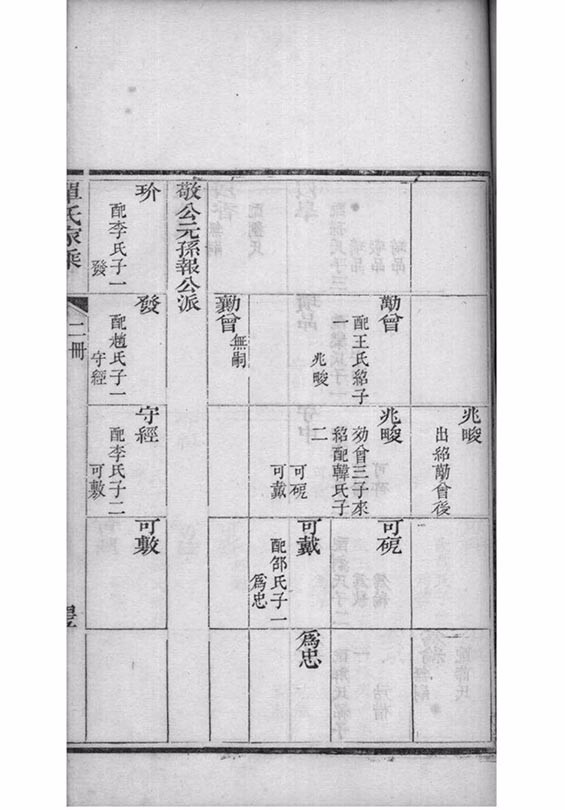 兆畯
出紹勱會後
勱會
配王氏紹子
一
兆畯
兆畯
効會三子來
紹配韓氏子
二
可硯
可戴
可硯
可戴
配邵氏子一
爲忠
爲忠
會
無嗣
敬公元孫報公派
玠
配李氏子一
發
發
配趙氏子一
守經
守經
配李氏子二
可敷
可敷
氏家乘
二冊